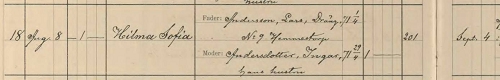 hustru
Fader: Andersson, Lars, Dräng, 71 1/4
18 Aug. 8 — 1 — Hilma Sofia No 9 Hemmestorp 201 Sept. 4
Moder: Andersdotter, Ingar, 71 29/4 1 —
hans hustru